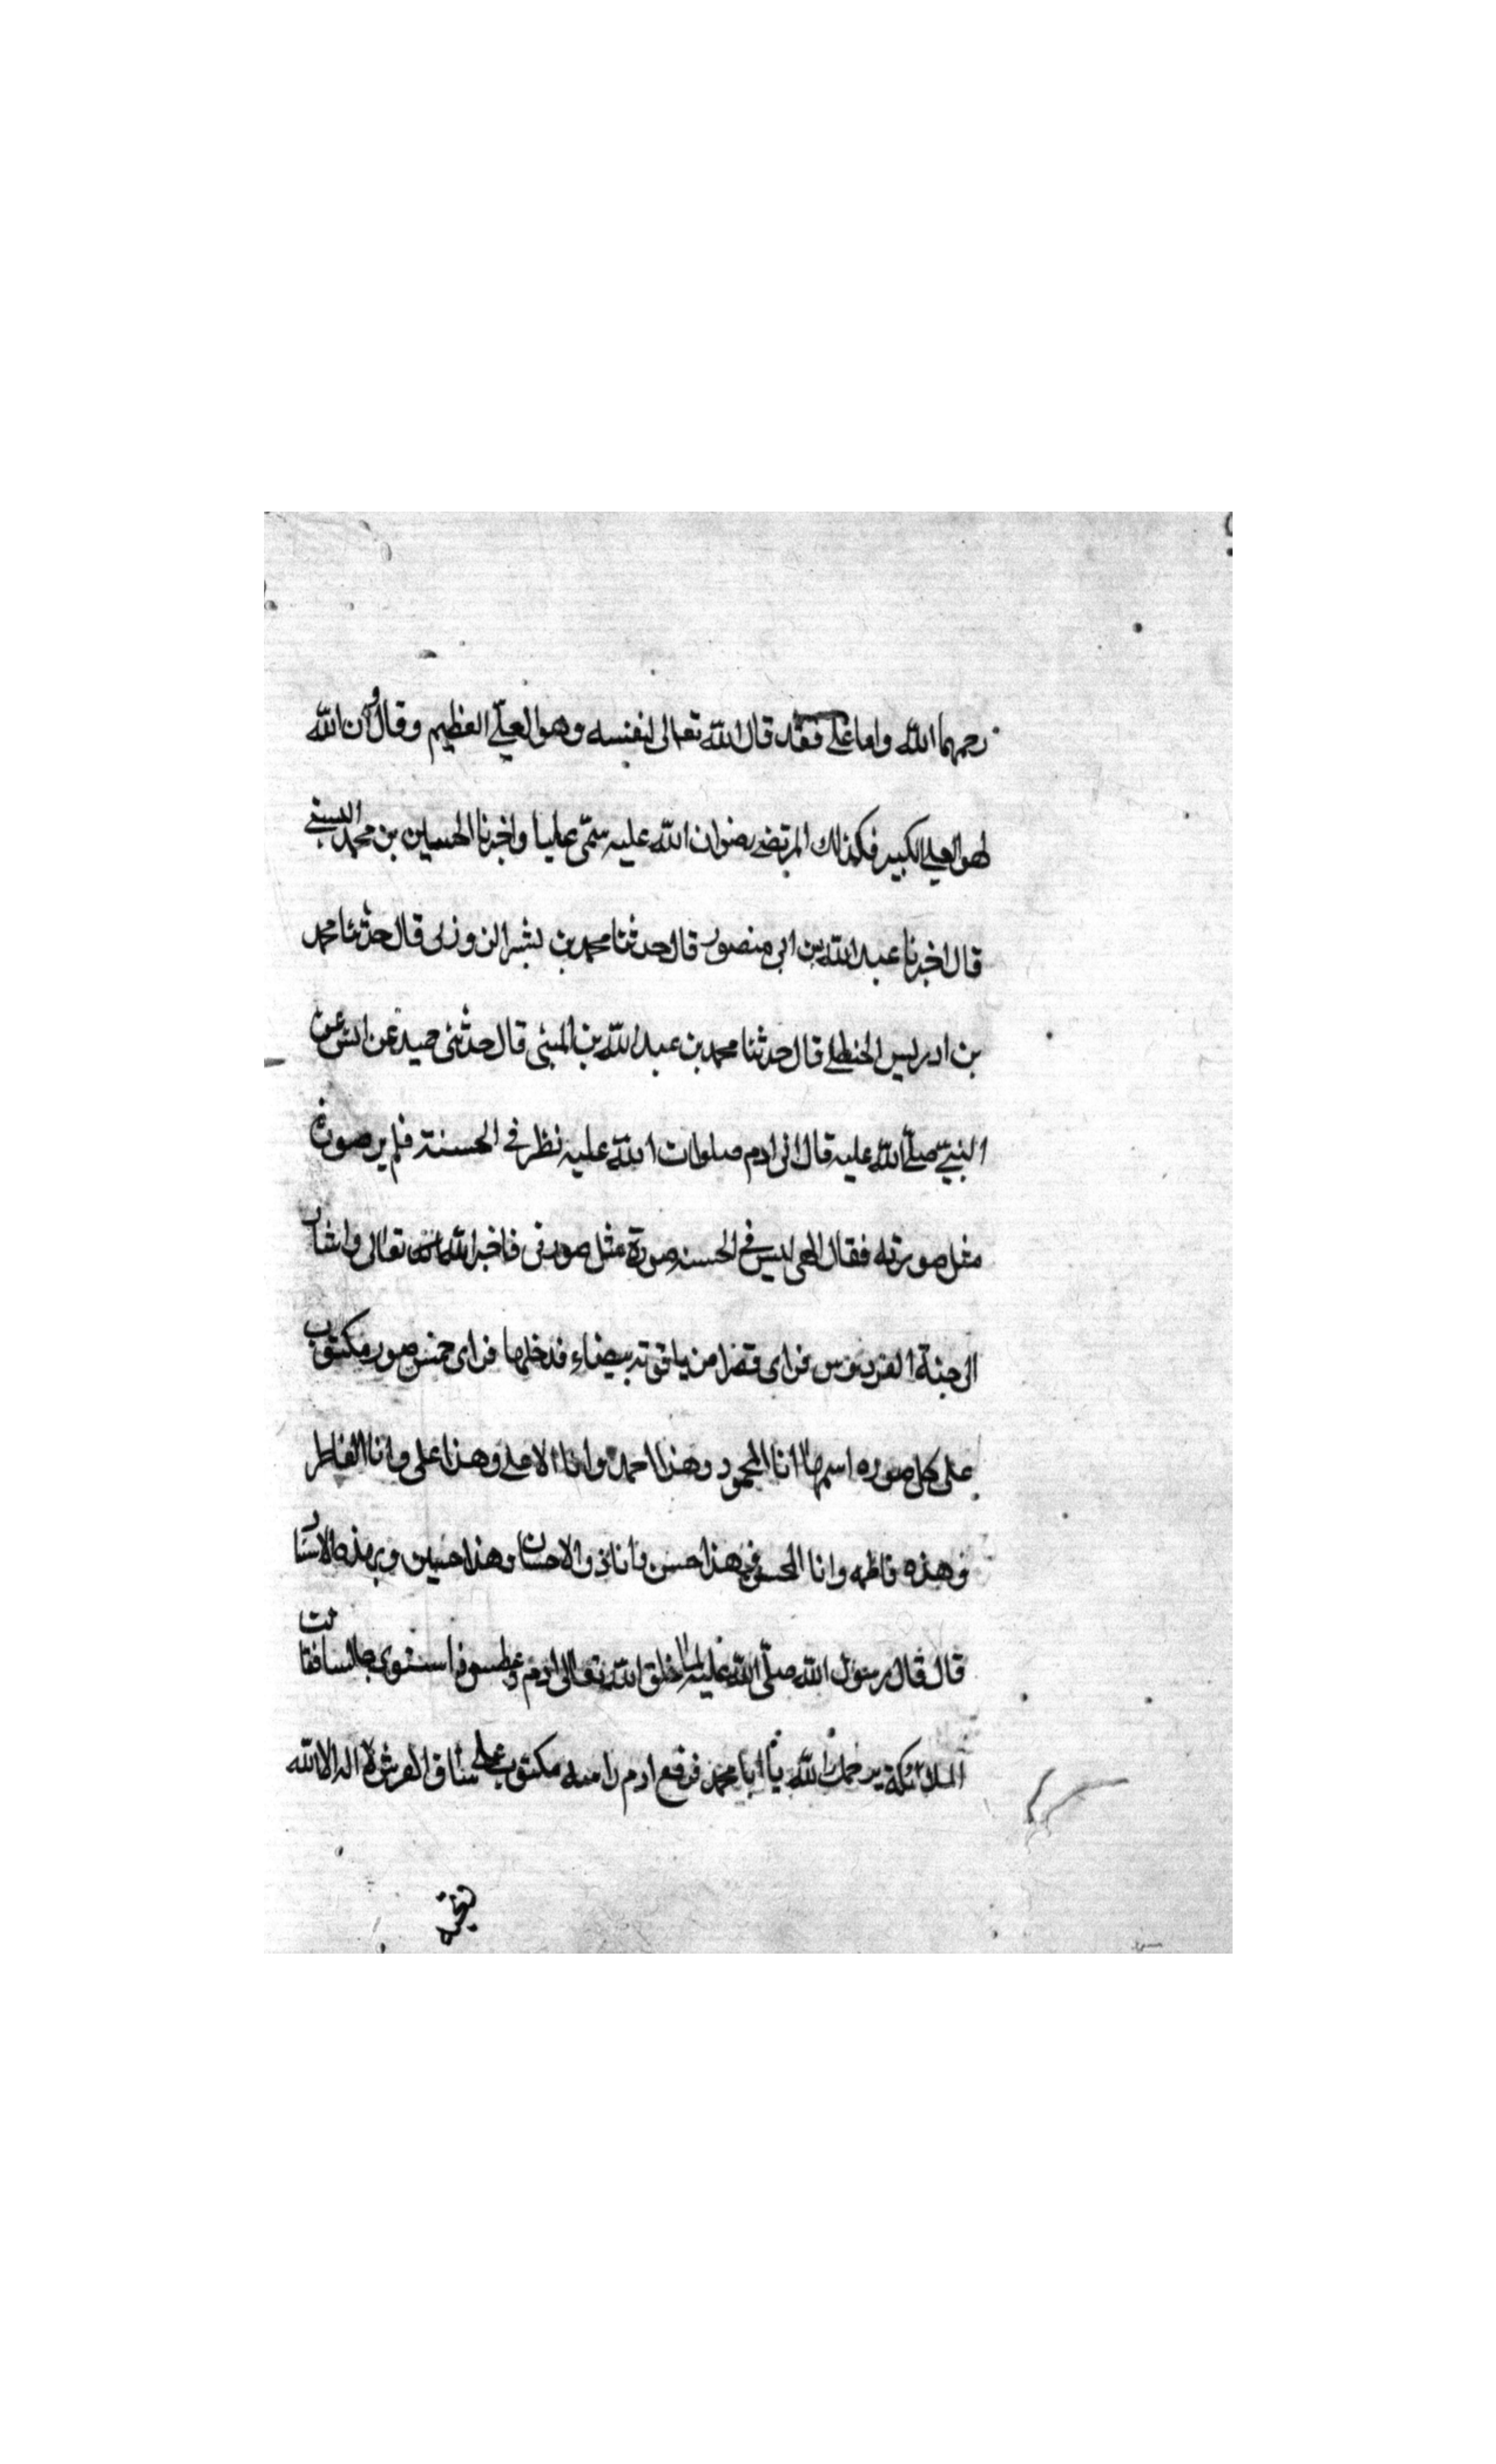 رحمهما الله واما علي فقد قال الله تعالى لنفسه وهو العلي العظيم وقال وان الله
لهو العلي الكبير فكذلك المرتضى رضوان الله عليه سمّى عليا واخبرنا الحسين بن محمد البستي
قال اخبرنا عبد الله بن ابي منصور قال حدثنا محمد بن بشر قال حدثنا محمد
بن ادريس الحنظلي قال حدثنا محمد بن عبد الله بن المثنى قال حدثنى حميد عن انس عن
النبي صلى الله عليه قال ان ادم صلوات الله عليه نظر في الحسنة فلم ير صورة
مثل صورته فقال الهى ليس في الحسنه صورة مثل صورتى فاخبر الله تعالى واشار
الى جنة الفردوس فراى قصرا من ياقوته بيضاء فدخلها فراى خمس صور مكتوب
على كل صوره اسمها انا المحمود وهذا احمد وانا الاعلى وهذا علي وانا الفاطر
وهذه فاطمه وانا المحسن فهذا حسن وانا ذو الاحسان وهذا حسين وبهذه الاسناد
قال قال رسول الله صلّى الله عليه لما خلق الله تعالى ادم وعطس فاستوى جالسا فقالت
الملائكة يرحمك الله يا ابا محمد فرفع ادم راسه مكتوب على ساق العرش لا اله الا الله